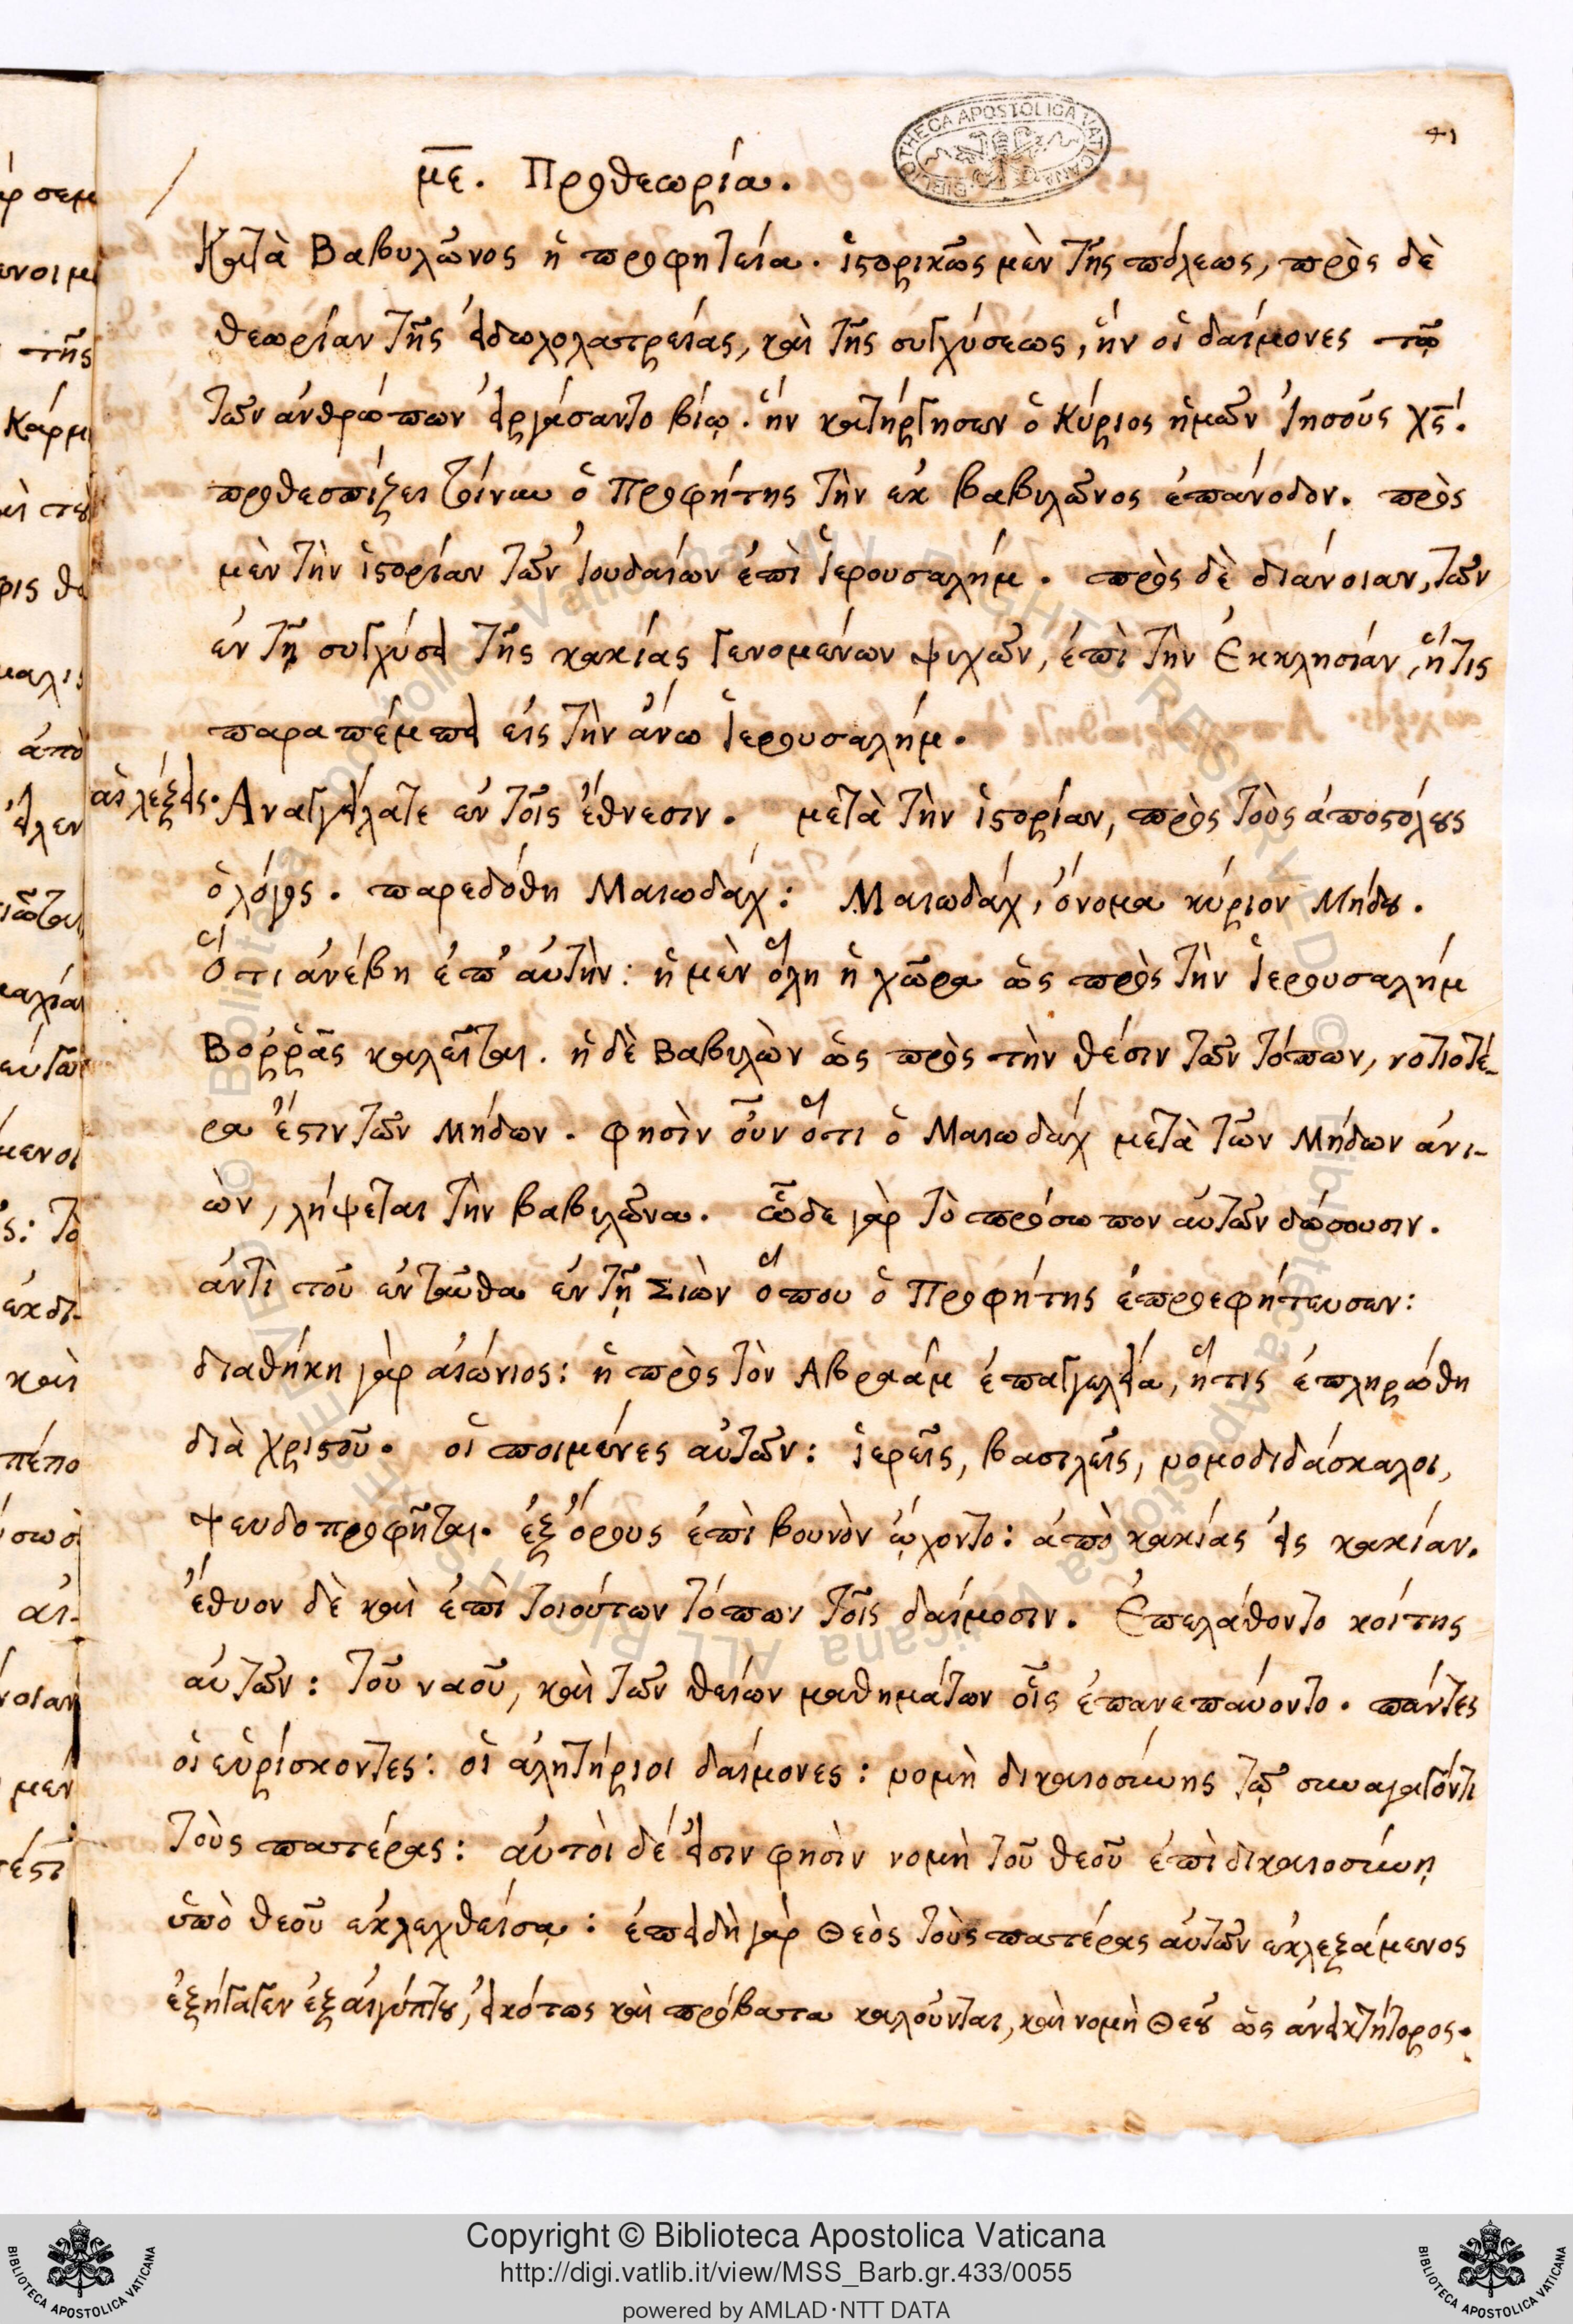 41
με. Προθεωρία.
Κατὰ Βαβυλῶνος ἡ προφητεία. ἱστορικῶς μὲν τῆς πόλεως, πρὸς δὲ
θεωρίαν τῆς εἰδωλολατρείας, καὶ τῆς συγχύσεως, ἣν οἱ δαίμονες τῷ
τῶν ἀνθρώπων εἰργάσαντο βίῳ. ἣν κατήργησεν ὁ Κύριος ἡμῶν Ἰησοῦς χς.
προθεσπίζει ὁ Προφήτης τὴν ἐκ βαβυλῶνος ἐπάνοδον. πρὸς
μὲν τὴν ἱστορίαν τῶν Ἰουδαίων ἐπὶ Ἱερουσαλήμ. πρὸς δὲ διάνοιαν, τῶν
ἐν τῇ συγχύσει τῆς κακίας γενομένων ψυχῶν, ἐπὶ τὴν Ἐκκλησίαν, ἥτις
παραπέμπει εἰς τὴν ἄνω Ἱερουσαλήμ.
αἱ λέξεις. Αναγγείλατε ἐν τοῖς ἔθνεσιν. μετὰ τὴν ἱστορίαν, πρὸς τοὺς ἀποστόλους
ὁ λόγος. παρεδόθη Μαιωδάχ: Μαιωδάχ, ὄνομα κύριον Μήδου.
Ὅτι ἀνέβη ἐπ' αὐτὴν: ἡ μὲν ὅλη ἡ χῶρα ὡς πρὸς τὴν Ἱερουσαλήμ
Βοῤῥᾶς καλεῖται. ἡ δὲ Βαβυλὼν ὡς πρὸς τὴν θέσιν τῶν τόπων, νοτιοτέ-
ρα ἔστιν τῶν Μήδων. φησὶν οὖν ὅτι ὁ Μαιωδάχ μετὰ τῶν Μήδων ἀνι-
ὼν, λήψεται τὴν βαβυλῶνα. ὧδε γὰρ τὸ πρόσωπον αὐτῶν δώσουσιν.
ἀντὶ τοῦ ἐνταῦθα ἐν τῇ Σιὼν ὅπου ὁ Προφήτης ἐπροεφήτευσεν:
διαθήκη γὰρ αἰώνιος: ἡ πρὸς τὸν Αβραάμ ἐπαγγελεία, ἥτις ἐπληρώθη
διὰ χριστοῦ. οἱ ποιμένες αὐτῶν: ἱερεῖς, βασιλεῖς, νομοδιδάσκαλοι,
ψευδοπροφῆται. ἐξ ὄρους ἐπὶ βουνὸν ᾤχοντο: ἀπὸ κακίας εἰς κακίαν.
ἔθυον δὲ καὶ ἐπὶ τοιούτων τόπων τοῖς δαίμοσιν. Ἐπελάθοντο κοίτης
αὐτῶν: τοῦ ναοῦ, καὶ τῶν θείων μαθημάτων οἷς ἐπανεπαύοντο. πάντες
οἱ εὑρίσκοντες: οἱ ἀλητήριοι δαίμονες: νομὴ δικαιοσύνης τῷ συναγαγόντι
τοὺς πατέρας: αὐτοὶ δέ εἰσιν φησὶν νομὴ τοῦ θεοῦ ἐπὶ δικαιοσύνῃ
ὑπὸ θεοῦ ἐκλεχθείσᾳ: ἐπειδὴ γὰρ Θεὸς τοὺς πατέρας αὐτῶν ἐκλεξάμενος
ἐξήγαγεν ἐξ αἰγύπτου, εἰκότως καὶ πρόβατα καλοῦνται, καὶ νομὴ Θεοῦ ὡς
Copyright © Biblioteca Apostolica Vaticana
http://digi.vatlib.it/view/MSS_Barb.gr.433/0055
powered by AMLAD·NTT DATA